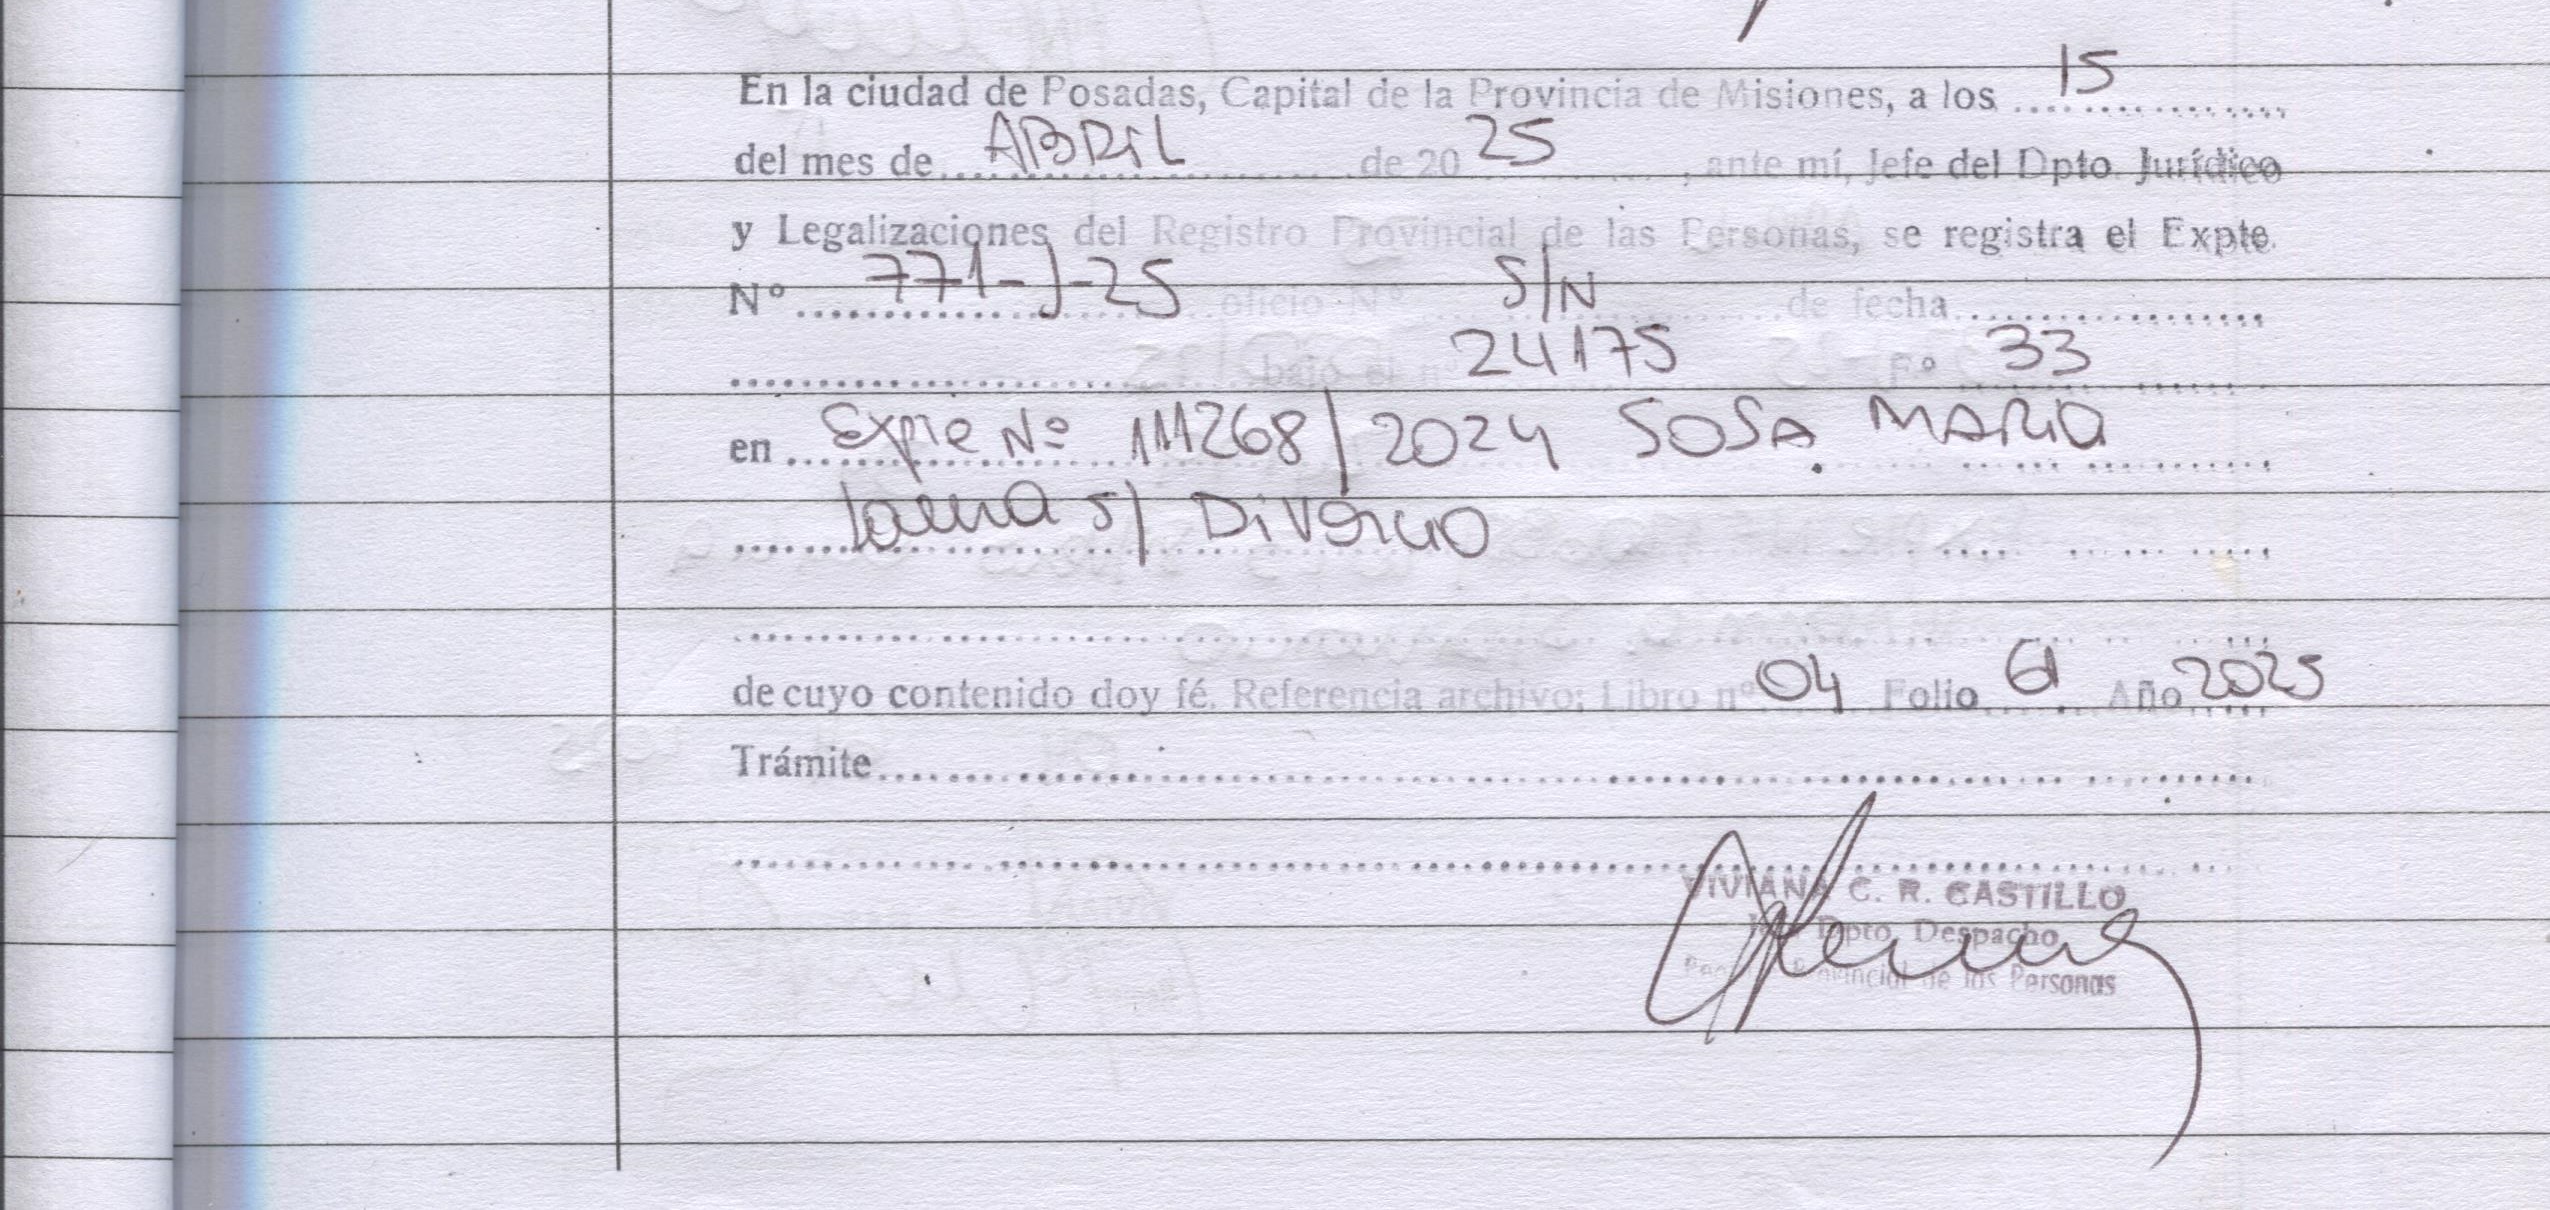 En la ciudad de Posadas, Capital de la Provincia de Misiones, a los 15
del mes de ABRIL de 20 25, ante mí, Jefe del Dpto. Jurídico
y Legalizaciones del Registro Provincial de las Personas, se registra el Expte.
Nº 771-J-25 oficio Nº S/N de fecha
bajo el nº 24175 Fº 33
en Expte Nº 111268/2024 SOSA MARIA
s/ DiVorcio
de cuyo contenido doy fé. Referencia archivo; Libro nº 04 Folio 61 Año 2025
Trámite
VIVIANA C. R. CASTILLO
Jefe Dpto. Despacho
Registro Provincial de las Personas